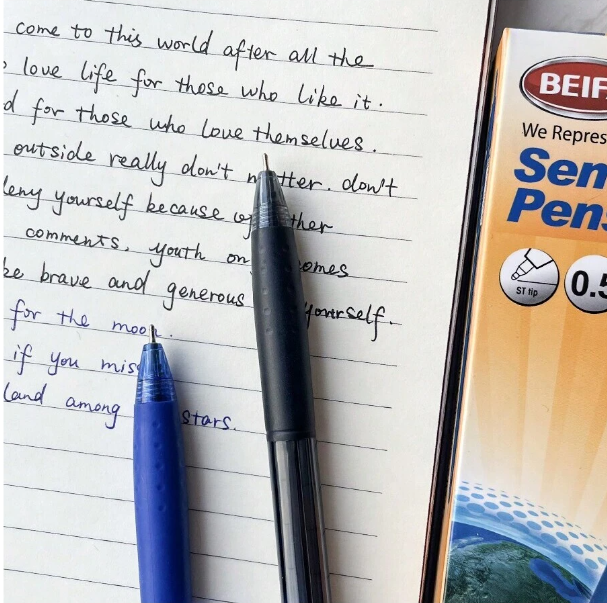 come to this world after all the
love life for those who like it.
d for those who love themselves.
outside really don't m tter. don't
leny yourself because o ther
comments. youth on omes
be brave and generous yourself.
for the moon.
if you mis
land among stars.
BEIF
We Repres
Sen
Pens
ST tip
0.5